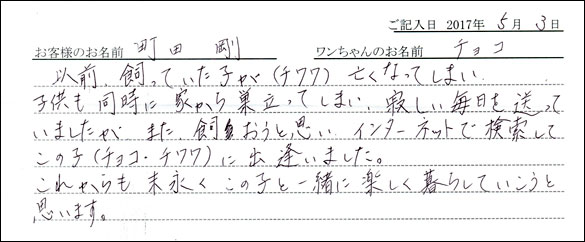 ご記入日 2017年 5月 3日
お客様のお名前 町田 剛 ワンちゃんのお名前 チョコ
以前、飼っていた子が(チワワ)亡くなってしまい
子供も同時に家から巣立ってしまい、寂しい毎日を送って
いましたが また 飼おうと思い インターネットで検索して
この子(チョコ・チワワ)に出逢いました。
これからも 末永く この子と一緒に楽しく暮らしていこうと
思います。